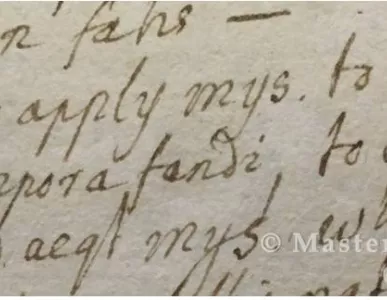 n fabs —
apply mys. to
rpora fandi, to
aeqt mys, w
© Master